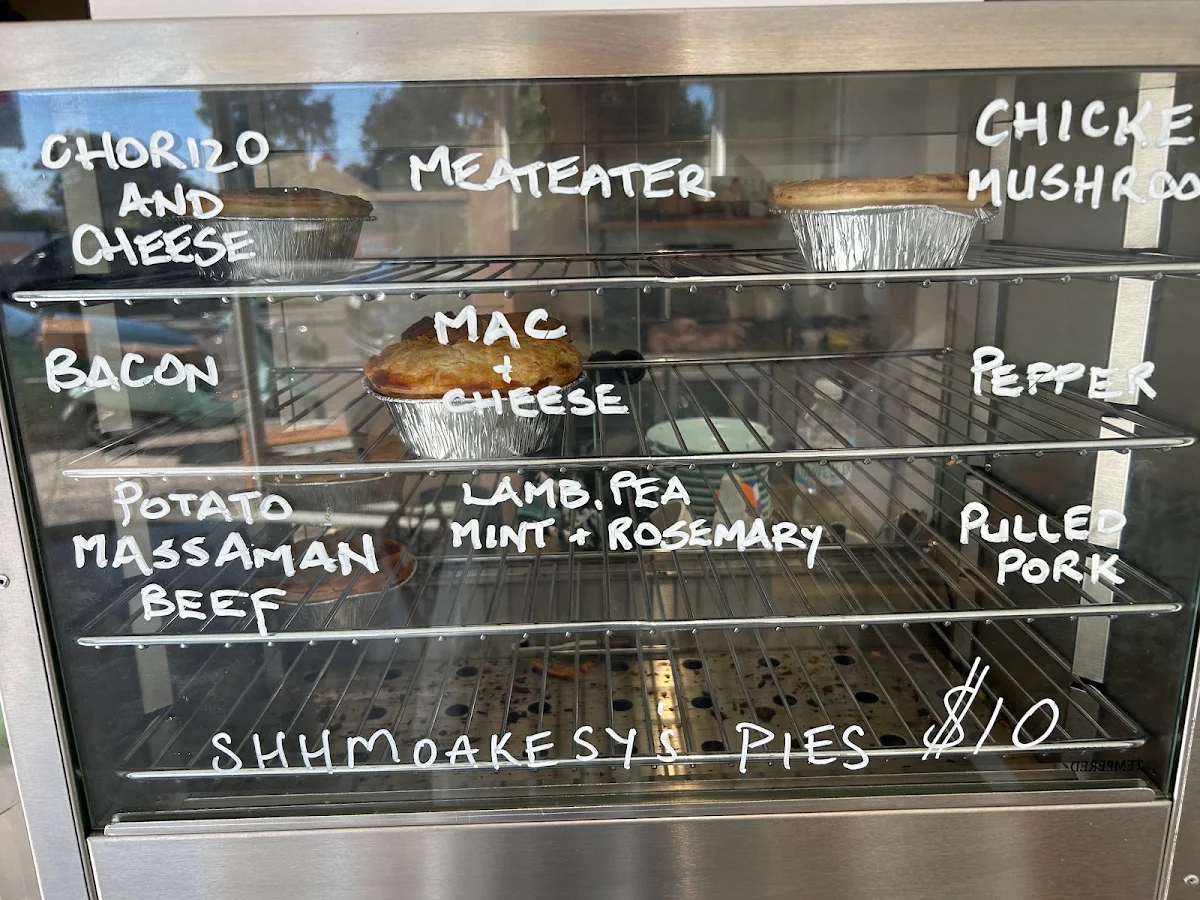 CHORIZO
AND
CHEESE
MEATEATER
CHICKE
MUSHROO
BACON
MAC
+
CHEESE
PEPPER
POTATO
MASSAMAN
BEEF
LAMB. PEA
MINT + ROSEMARY
PULLED
PORK
SHHMOAKESY'S PIES $10
TEMPERED